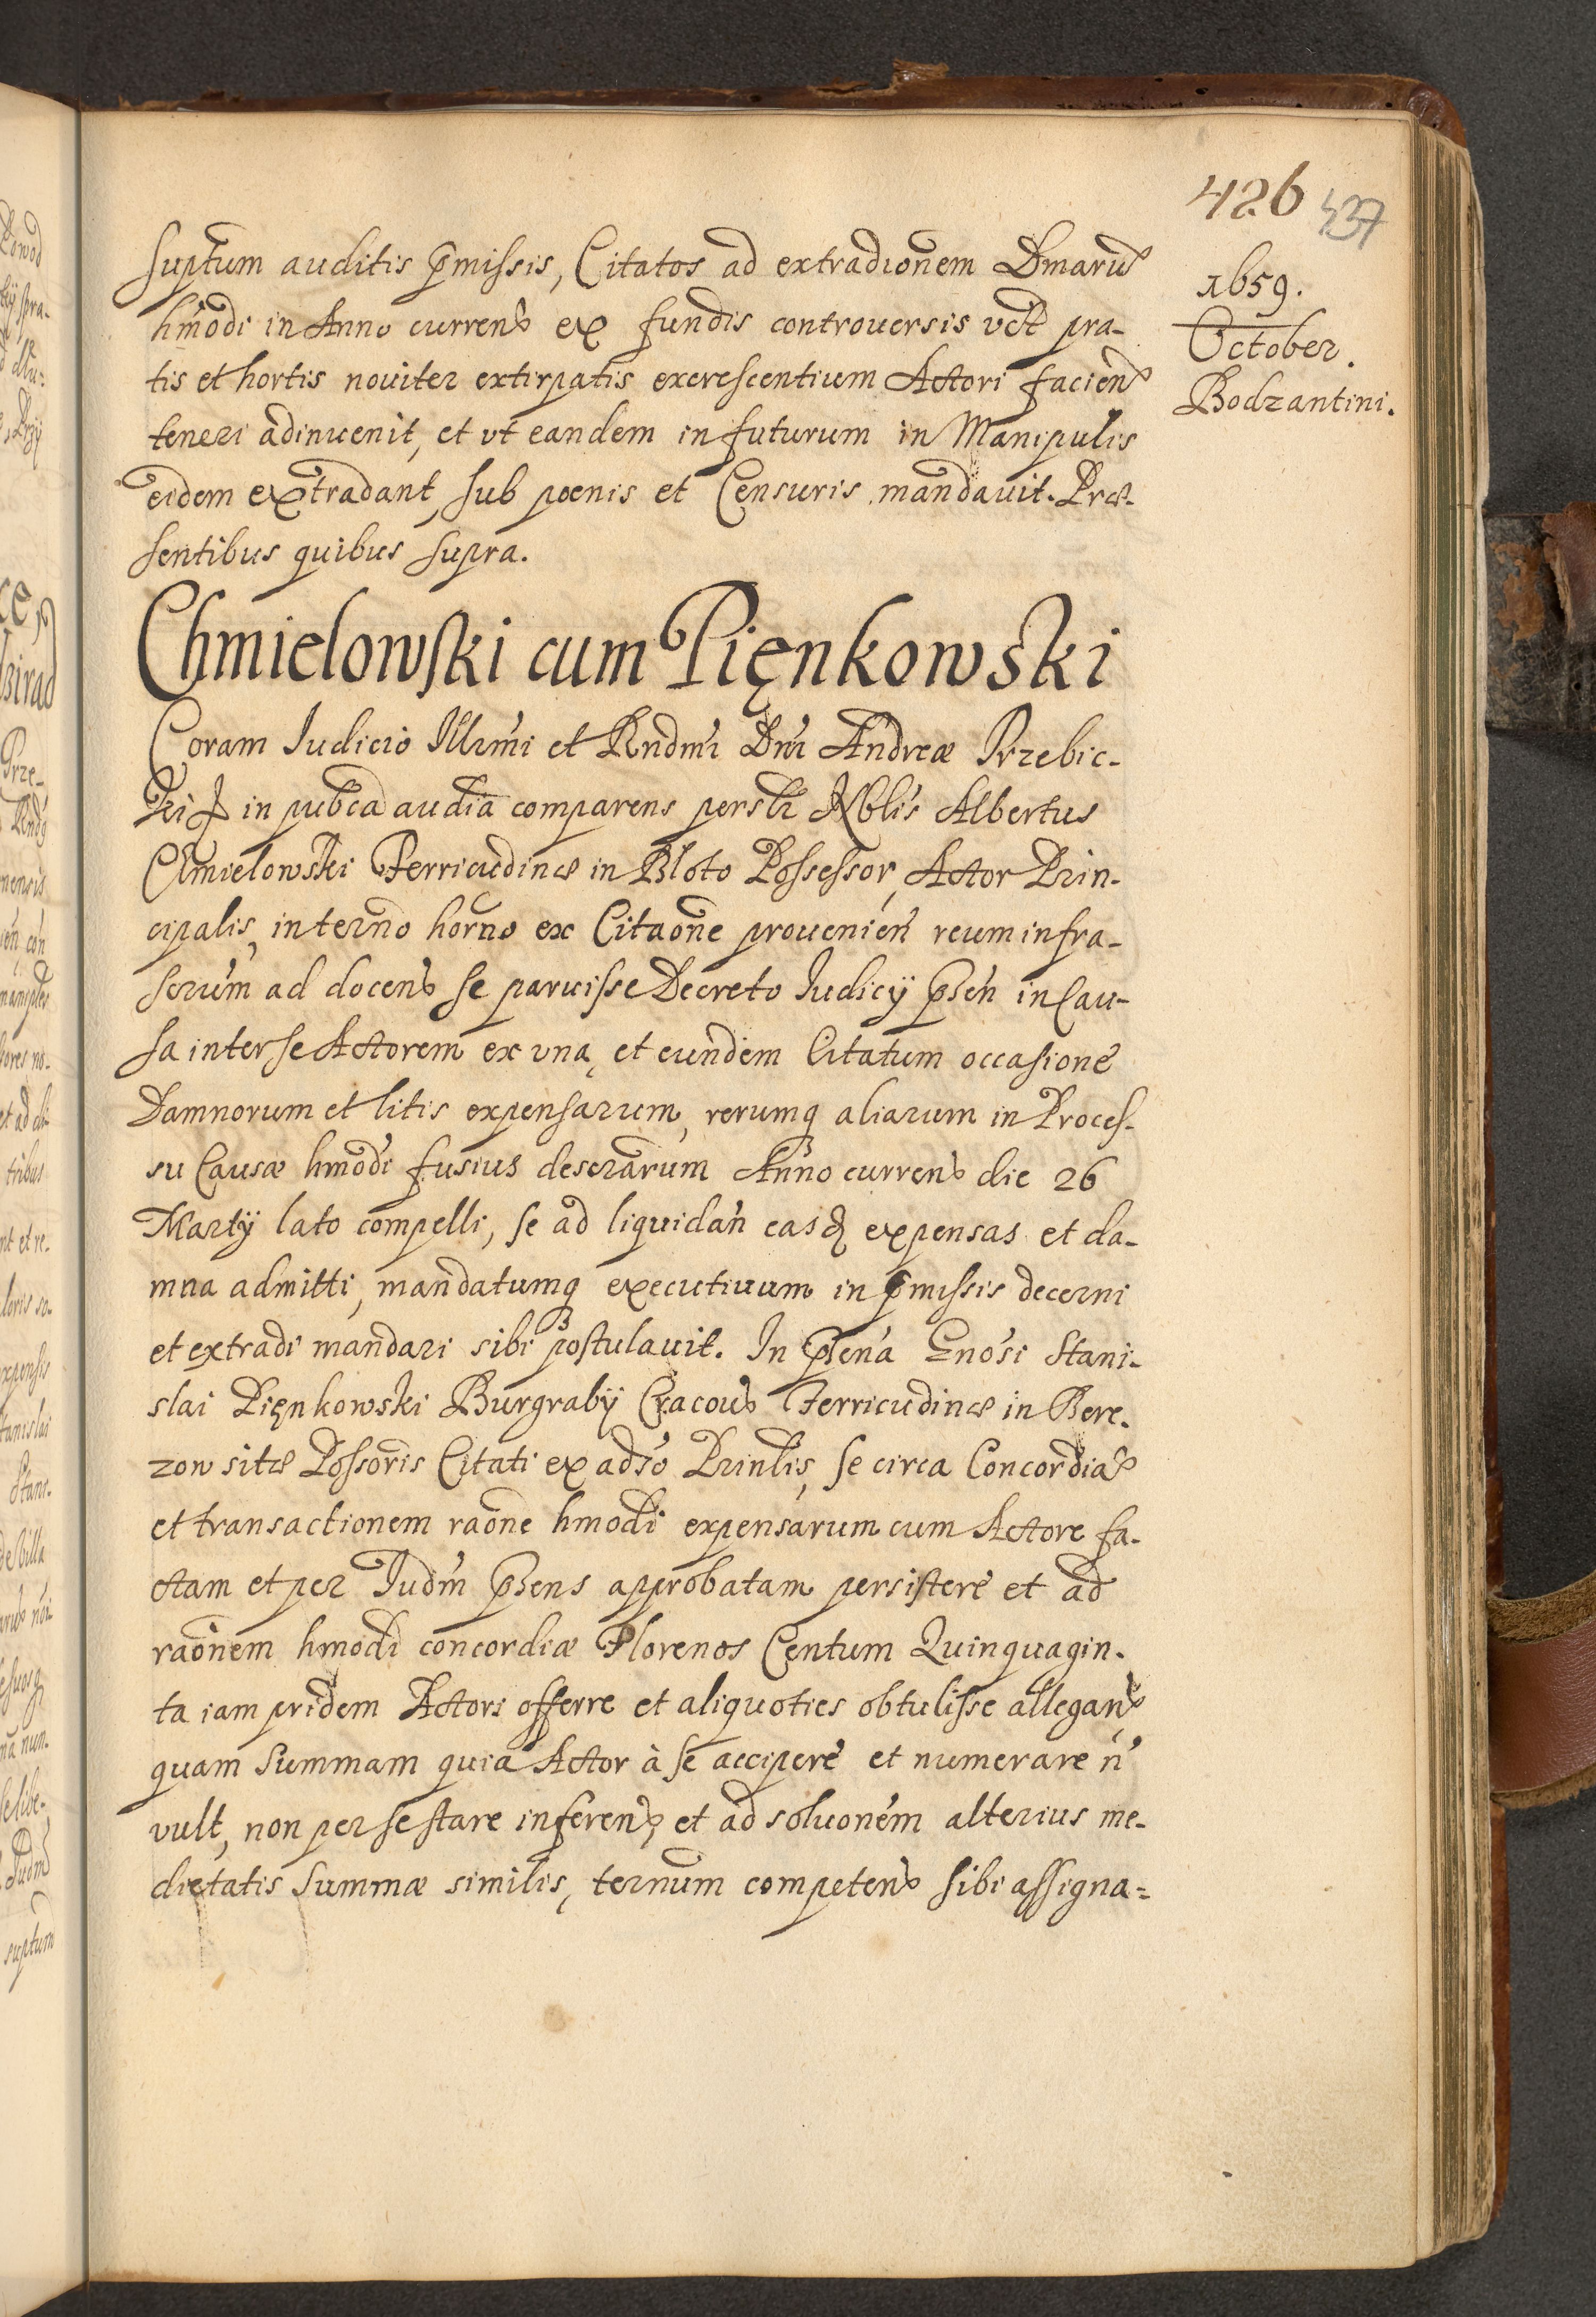 426 437
1659.
October.
Bodzantini.
suptum auditis p̄missis, Citatos ad extradionem Dmarū
hmodi in Anno curren ex fundis controversis vct pra-
tis et hortis noviter extirpatis excrescentium Actori facien
teneri adinvenit, et vt eandem in futurum in Manipulis
eidem extradant, sub poenis et Censuris mandavit. Præ-
sentibus quibus supra.
Chmielowski cum Pięnkowski
Coram Iudicio Illrmi et Rndmi Dni Andreæ Trzebic-
ki in pubca audia comparens persłr Nblis Albertus
Chmielowski Terricudinæ in Bloto Possessor, Actor Prin-
cipalis, in terno horno ex Citaone provenien reum infra-
scrum ad docen se paruisse Decreto Iudicÿ p̄sen in Cau-
sa inter se Actorem ex vna, et eundem Citatum occasione
Damnorum et litis expensarum, rerumq aliarum in Proces-
su Causæ hmodi fusius descrarum Anno curren die 26
Martÿ lato compelli, se ad liquidan easd expensas et da-
mna admitti, mandatumq executivum in p̄missis decerni
et extradi mandari sibi postulavit. In p̄sena Gnosi Stani-
slai Pięnkowski Burgrabÿ Cracov Terricudinæ in Bere-
zow sitæ Possoris Citati ex adso Prinlis, se circa Concordiā
et transactionem raone hmodi expensarum cum Actore fa-
ctam et per Iudm p̄sens approbatam persistere et ad
raonem hmodi concordiæ Florenos Centum Quinquagin-
ta iam pridem Actori offerre et aliquoties obtulisse allegan
quam summam quia Actor à se accipere et numerare n̄
vult, non per se stare inferen, et ad soluonem alterius me-
dietatis summæ similis, ternum competen sibi assigna=